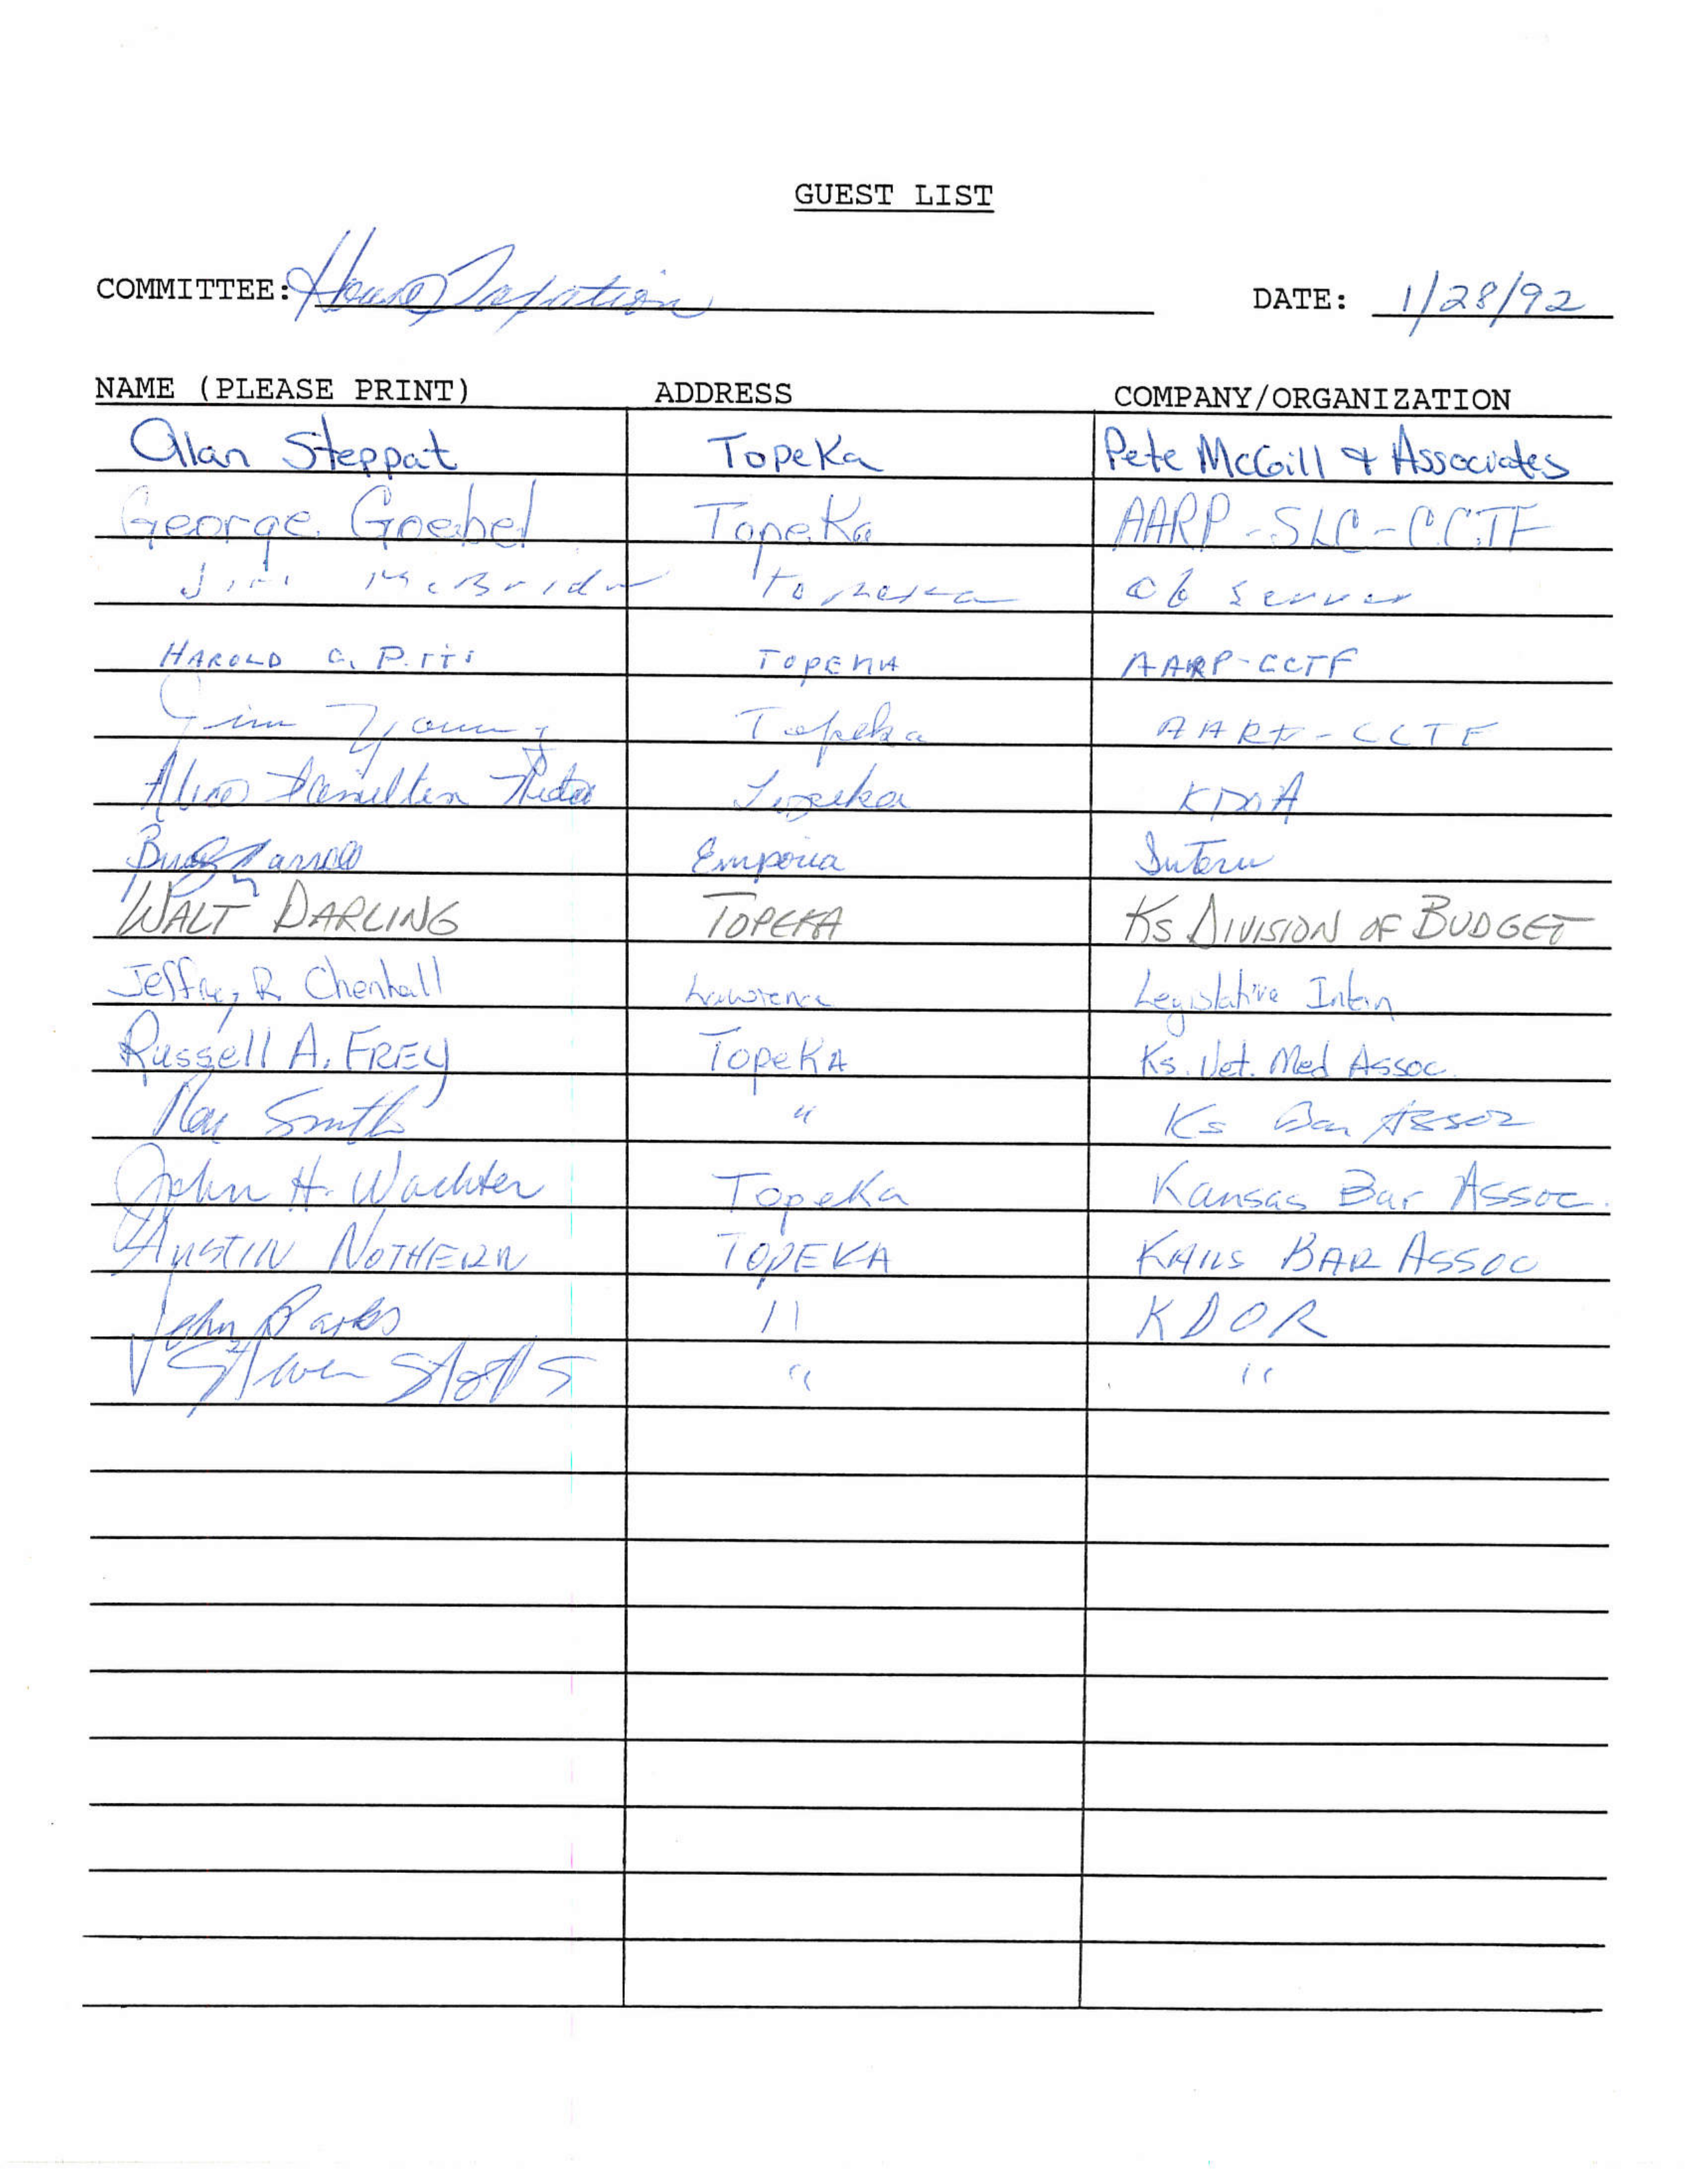 GUEST LIST
COMMITTEE: House Taxation DATE: 1/28/92
NAME (PLEASE PRINT) ADDRESS COMPANY/ORGANIZATION
Alan Steppat Topeka Pete McGill & Associates
George Goebel Topeka AARP-SLC-CCTF
Jim McBride Topeka Observer
HAROLD C. PITTS TOPEKA AARP-CCTF
Jim Young Topeka AARP-CCTF
Hamilton Topeka
Emporia Intern
WALT DARLING TOPEKA KS DIVISION OF BUDGET
Jeffrey R. Chenhall Lawrence Legislative Intern
Russell A. FREY TopeKA Ks. Vet. Med Assoc.
Ron Smith " Ks Bar Assoc
John H. Wachter Topeka Kansas Bar Assoc.
AUSTIN NOTHERN TOPEKA KANS BAR ASSOC
John Parks " KDOR
Steven Stotts " "